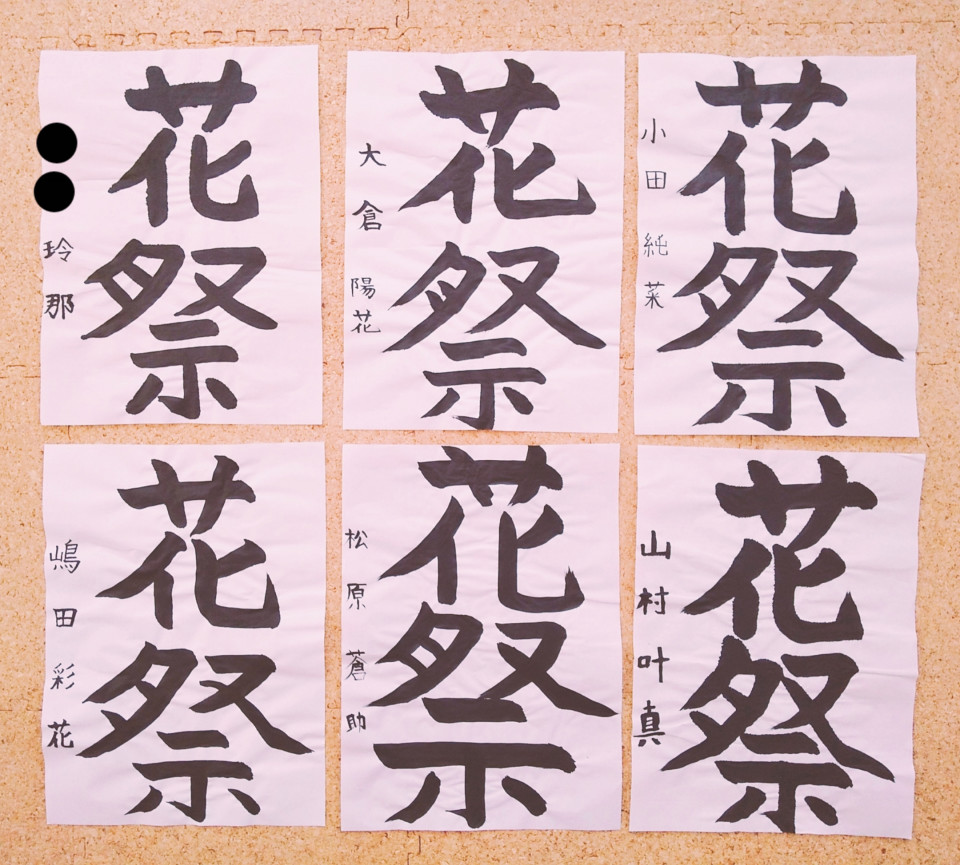 花祭
玲那
花祭
大倉陽花
花祭
小田純菜
花祭
嶋田彩花
花祭
松原蒼助
花祭
山村叶真